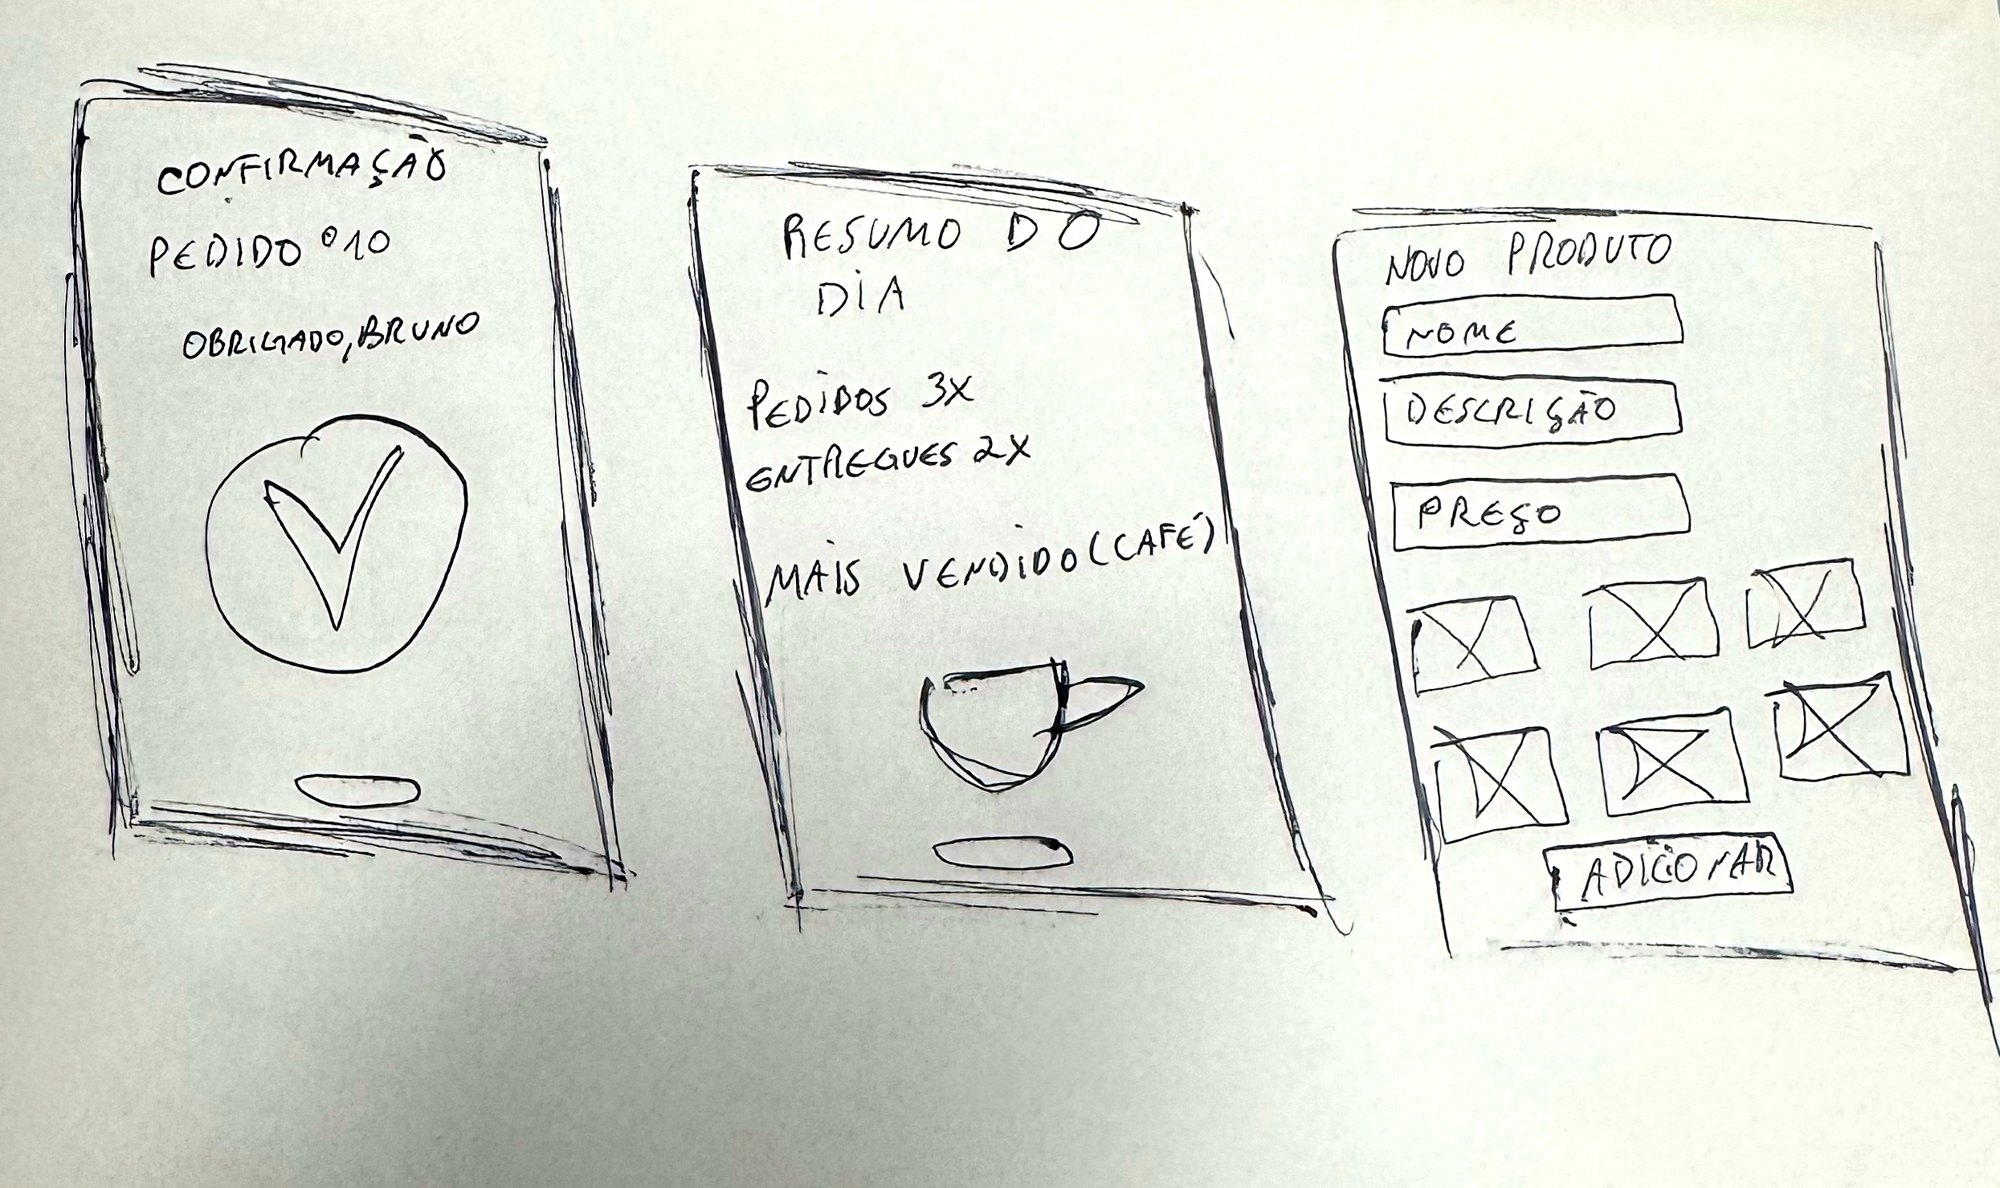 CONFIRMAÇÃO
PEDIDO º10
OBRIGADO, BRUNO
RESUMO DO
DIA
PEDIDOS 3X
ENTREGUES 2X
MAIS VENDIDO (CAFÉ)
NOVO PRODUTO
NOME
DESCRIÇÃO
PREÇO
ADICIONAR